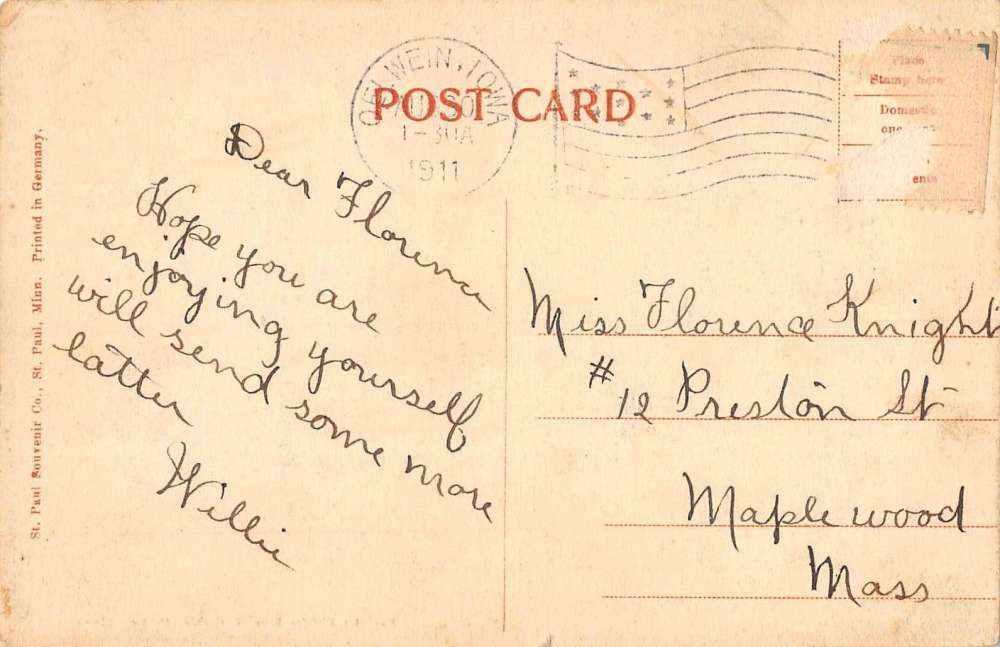 POST CARD
OELWEIN, IOWA
30
1-30A
1911
Place
Stamp here
Domestic
St. Paul Souvenir Co., St. Paul, Minn. Printed in Germany.
Dear Florence
Hope you are
enjoying yourself
will send some more
latter
Willie
Miss Florence Knight
#12 Preston St
Maplewood
Mass